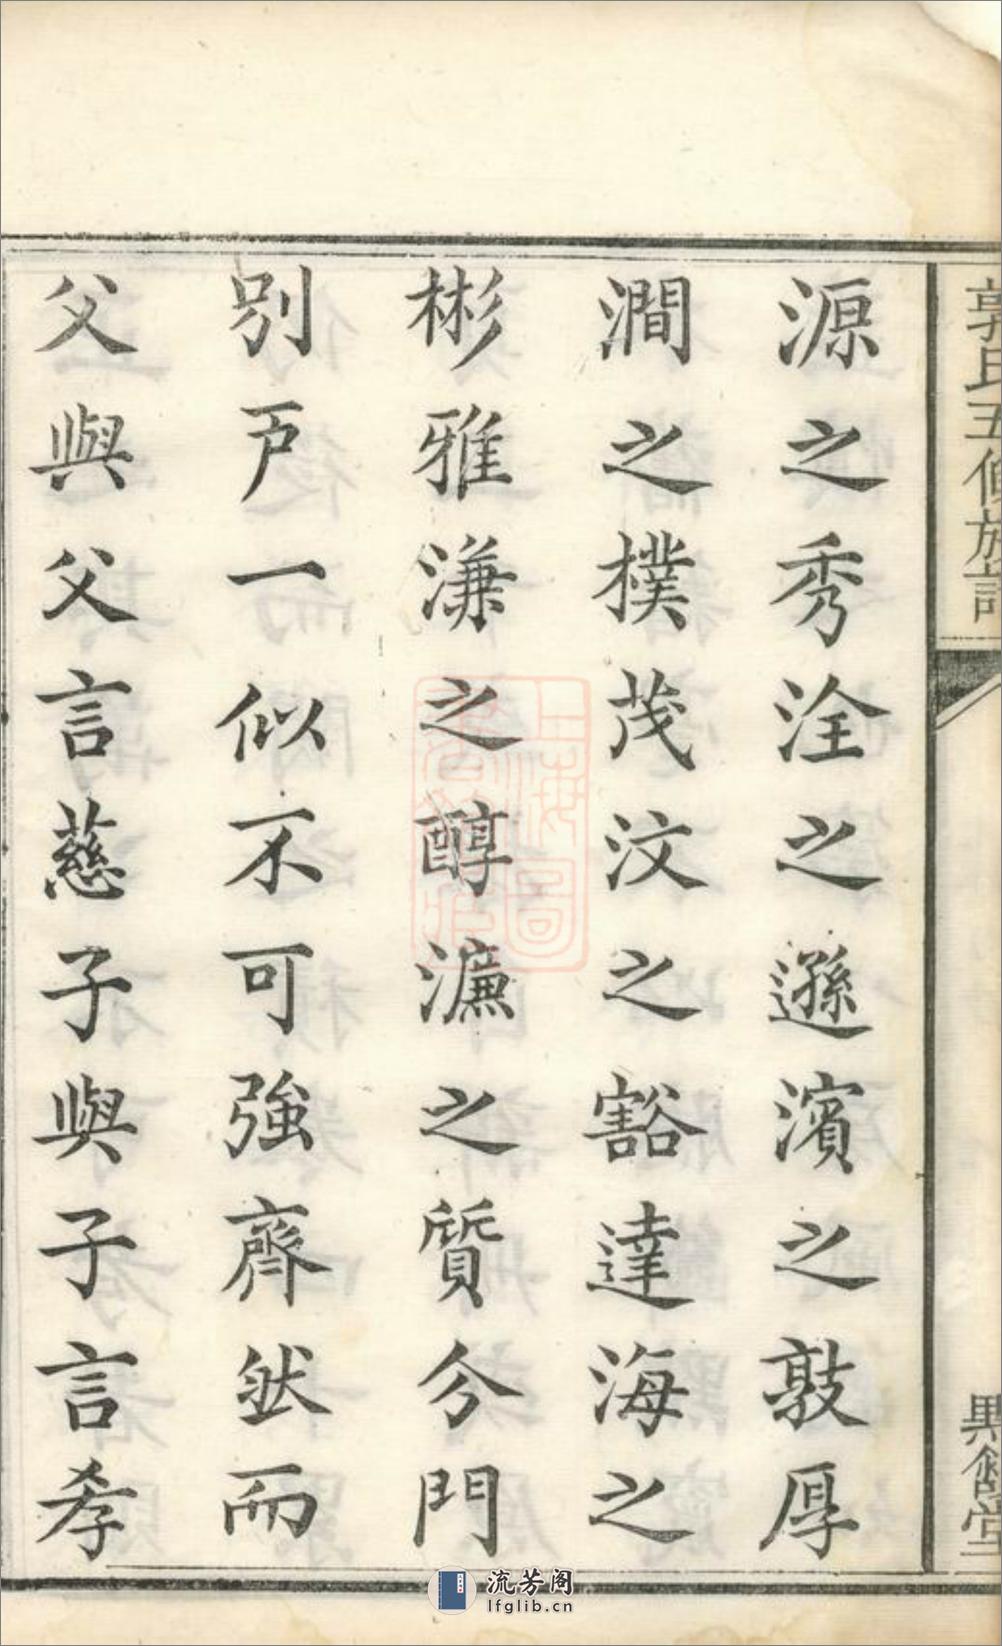 源之秀洤之遜濱之敦厚
澗之樸茂汶之豁達海之
彬雅濂之醇濂之質分門
別戶一似不可強齊然而
父與父言慈子與子言孝
郭氏五修族譜
上海圖
流芳阁
lfglib.cn